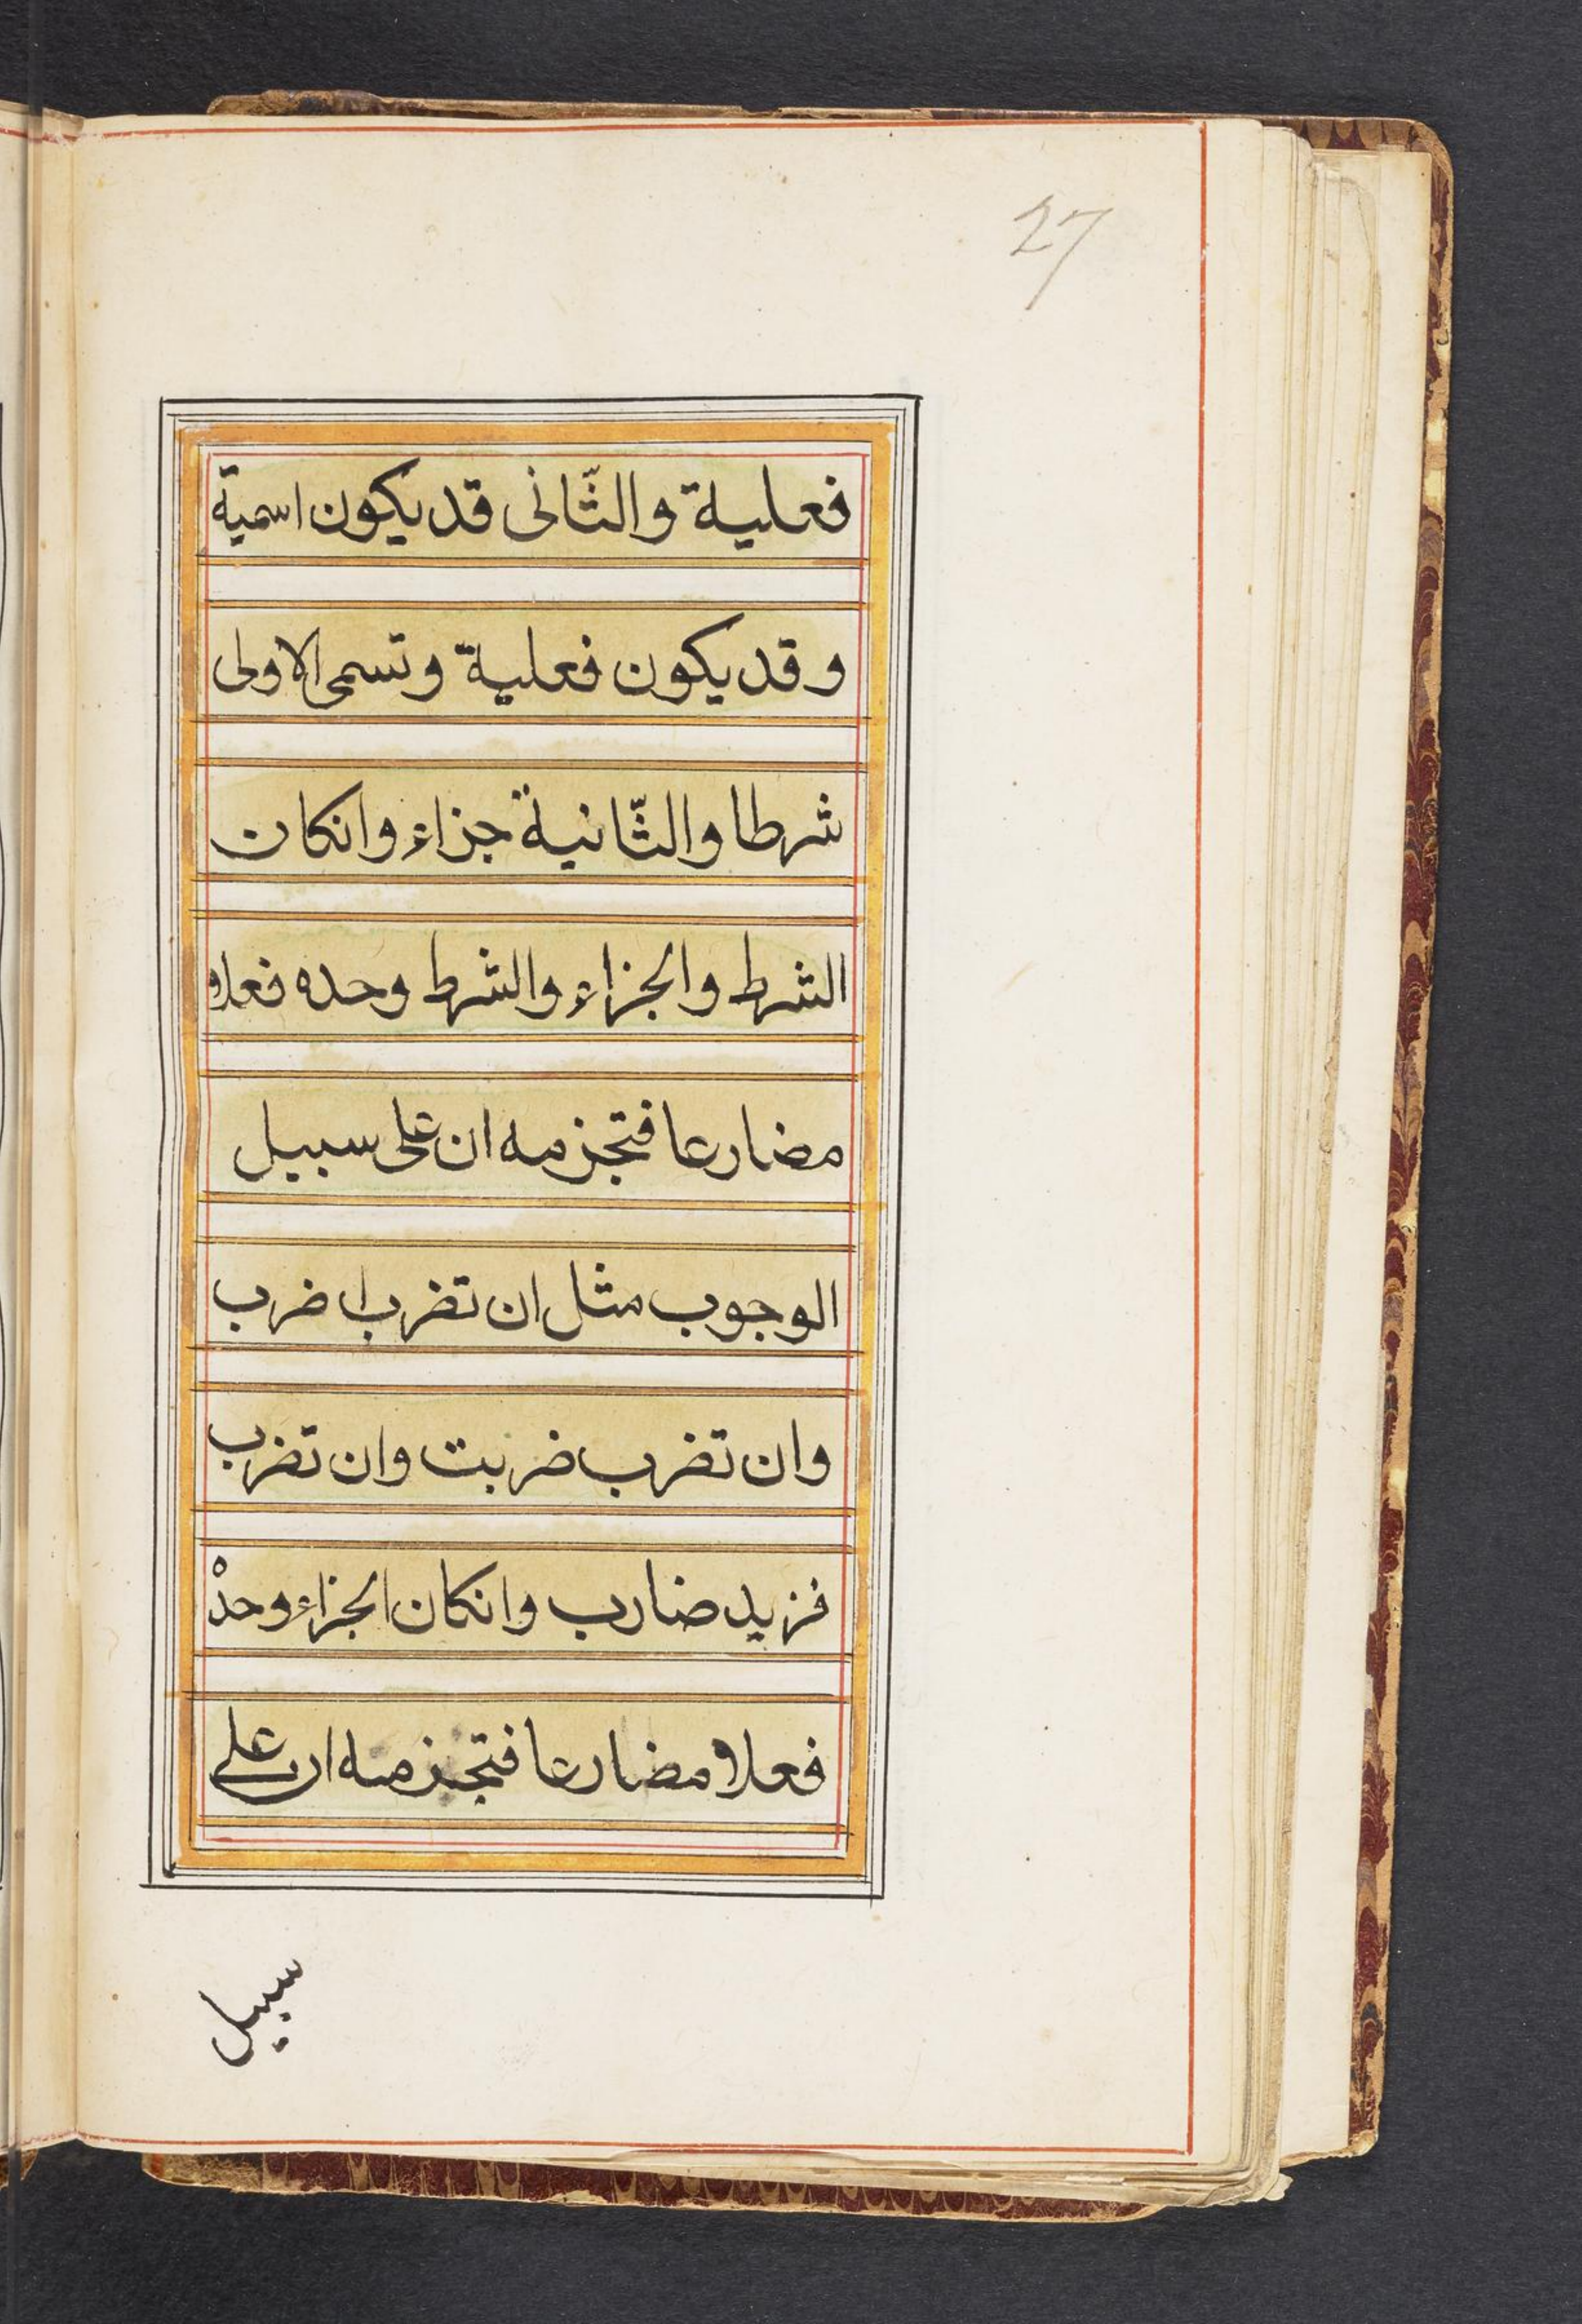 27
فعلية والثّانى قد يكون اسمية
و قد يكون فعلية و تسمى الاولى
شرطا والثّانية جزاء وانكان
الشرط والجزاء والشرط وحده فعلا
مضارعا فتجزمه ان على سبيل
الوجوب مثل ان تضرب اضرب
وان تضرب ضربت وان تضرب
فزيد ضارب وانكان الجزاء وحده
فعلا مضارعا فتجزمه ان على
سبيل